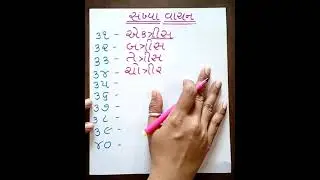 સખ્યા વાચન
૩૧ - એકત્રીસ
૩૨ - બત્રીસ
૩૩ - તેત્રીસ
૩૪ - ચોત્રીર
૩૫ -
૩૬ -
૩૭ -
૩૮ -
૩૯ -
૪૦ -